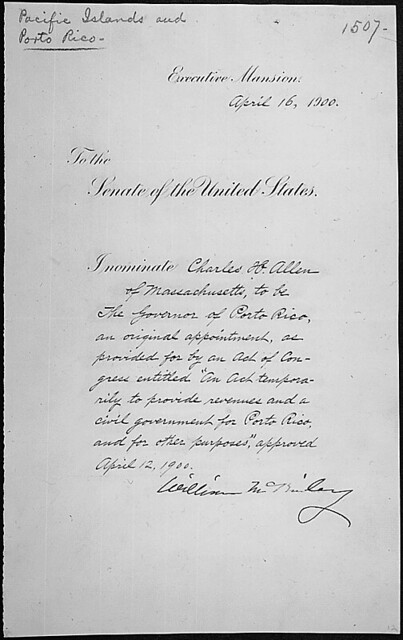 Pacific Islands and
Porto Rico-
1507-
Executive Mansion,
April 16, 1900.
To the
Senate of the United States.
I nominate Charles H. Allen
of Massachusetts, to be
The Governor of Porto Rico,
an original appointment, as
provided for by an Act of Con-
gress entitled "An Act tempora-
rily to provide revenues and a
civil government for Porto Rico,
and for other purposes", approved
April 12, 1900.
William McKinley